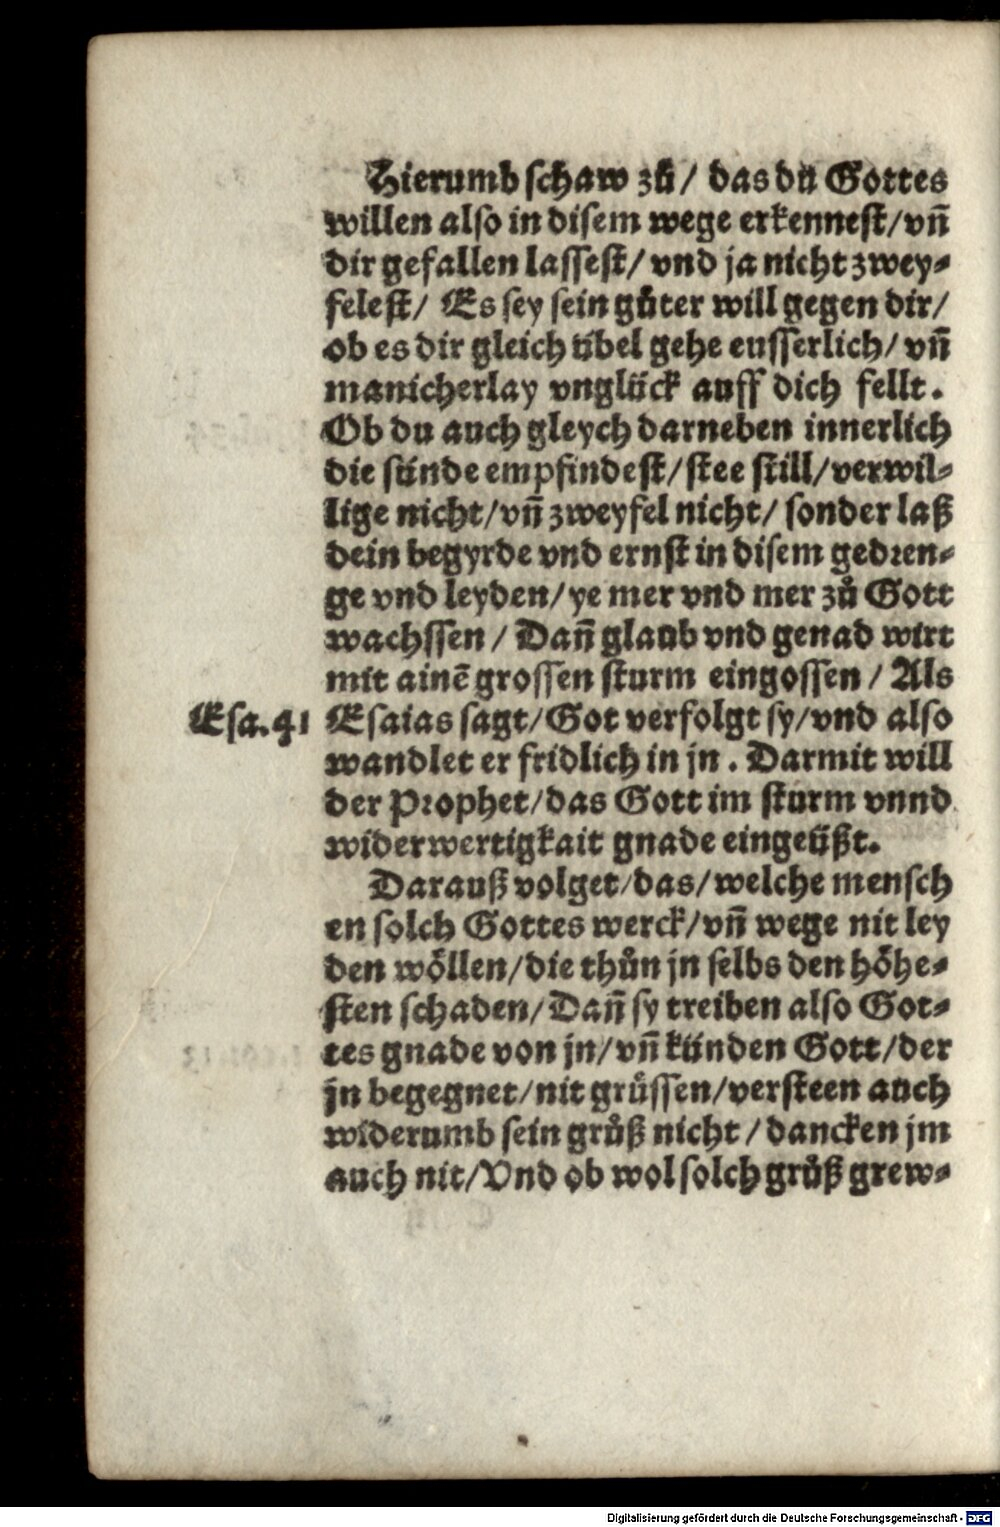 Hierumb schaw zů/ das du Gottes
willen also in disem wege erkennest/vñ
dir gefallen lassest/ vnd ja nicht zwey-
felest/ Es sey sein gůter will gegen dir/
ob es dir gleich übel gehe eusserlich/ vñ
manicherlay vnglück auff dich fellt.
Ob du auch gleych darneben innerlich
die sünde empfindest/stee still/verwil-
lige nicht/vñ zweyfel nicht/ sonder laß
dein begyrde vnd ernst in disem gedren-
ge vnd leyden/ye mer vnd mer zů Gott
wachssen / Dañ glaub vnd genad wirt
mit ainẽ grossen sturm eingossen / Als
Esa. 41 Esaias sagt/Got verfolgt sy/vnd also
wandlet er fridlich in jn . Darmit will
der Prophet/das Gott im sturm vnnd
widerwertigkait gnade eingeüßt.
Darauß volget/das/welche mensch
en solch Gottes werck/vñ wege nit ley
den wöllen/die thůn jn selbs den höhe-
sten schaden/Dañ sy treiben also Got-
tes gnade von jn/vñ künden Gott/der
jn begegnet/nit grüssen/versteen auch
widerumb sein grůß nicht/dancken jm
auch nit/Vnd ob wol solch grůß grew-
Digitalisierung gefördert durch die Deutsche Forschungsgemeinschaft - DFG